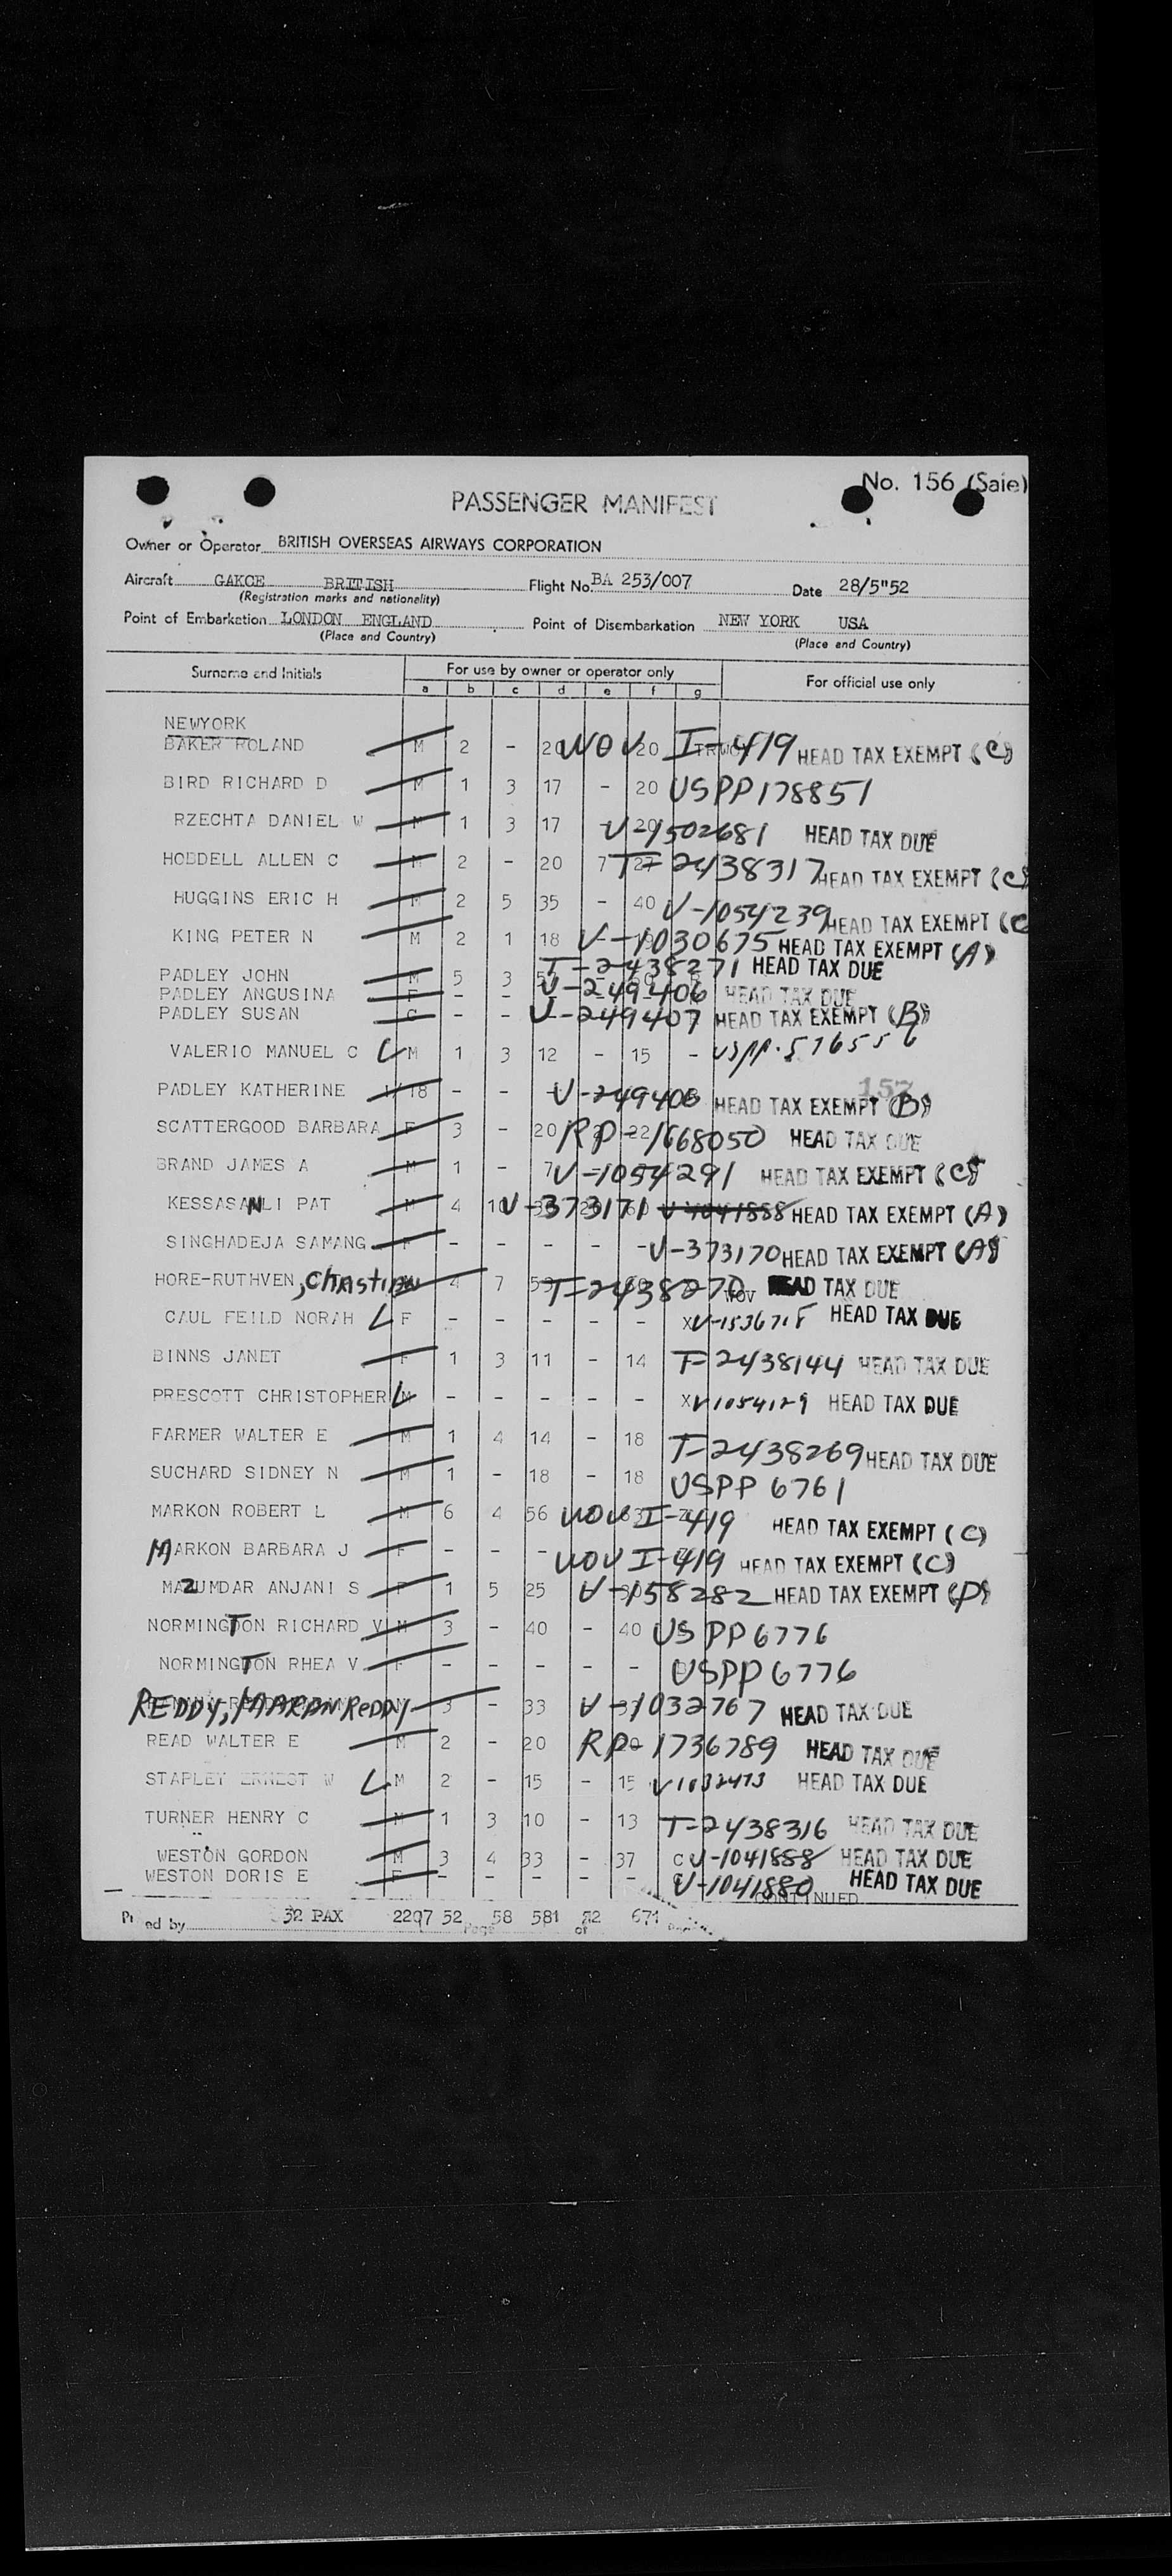 No. 156 (Saie)
PASSENGER MANIFEST
Owner or Operator BRITISH OVERSEAS AIRWAYS CORPORATION
Aircraft GAKCE BRITISH Flight No. BA 253/007 Date 28/5"52
(Registration marks and nationality)
Point of Embarkation LONDON ENGLAND Point of Disembarkation NEW YORK USA
(Place and Country) (Place and Country)
Surname and Initials For use by owner or operator only For official use only
a b c d e f g
NEWYORK
BAKER ROLAND M 2 - 20 WOV 20 I-419 HEAD TAX EXEMPT (C)
BIRD RICHARD D M 1 3 17 - 20 USPP178851
RZECHTA DANIEL W M 1 3 17 V-1502681 HEAD TAX DUE
HOBDELL ALLEN C M 2 - 20 7 27 T-2438317 HEAD TAX EXEMPT (C)
HUGGINS ERIC H M 2 5 35 - 40 V-1054239 HEAD TAX EXEMPT (C
KING PETER N M 2 1 18 V-1030675 HEAD TAX EXEMPT (A)
PADLEY JOHN M 5 3 T-2438271 HEAD TAX DUE
PADLEY ANGUSINA F - - V-249406 HEAD TAX DUE
PADLEY SUSAN C - - V-249407 HEAD TAX EXEMPT (B)
VALERIO MANUEL C M 1 3 12 - 15 - USPP.576556
157
PADLEY KATHERINE 1/18 - - V-249408 HEAD TAX EXEMPT (B)
SCATTERGOOD BARBARA F 3 - 20 22 RP-1668050 HEAD TAX DUE
BRAND JAMES A M 1 - 7 V-1054291 HEAD TAX EXEMPT (C)
KESSASANLI PAT M 4 10 V-373171 V-1041888 HEAD TAX EXEMPT (A)
SINGHADEJA SAMANG F - - - - - V-373170 HEAD TAX EXEMPT (A)
HORE-RUTHVEN, Christian 4 7 T-2438270 WOV HEAD TAX DUE
CAUL FEILD NORAH F - - - - - X V-153671F HEAD TAX DUE
BINNS JANET F 1 3 11 - 14 T-2438144 HEAD TAX DUE
PRESCOTT CHRISTOPHER M - - - - - X V1054129 HEAD TAX DUE
FARMER WALTER E M 1 4 14 - 18 T-2438269 HEAD TAX DUE
SUCHARD SIDNEY N M 1 - 18 - 18 USPP 6761
MARKON ROBERT L M 6 4 56 WOV I-419 HEAD TAX EXEMPT (C)
MARKON BARBARA J F - - - WOV I-419 HEAD TAX EXEMPT (C)
MAZUMDAR ANJANI S F 1 5 25 V-158282 HEAD TAX EXEMPT (D)
NORMINGTON RICHARD V M 3 - 40 - 40 USPP6776
NORMINGTON RHEA V F - - - - - USPP6776
REDDY, MARAN REDDY 3 - 33 V-1032767 HEAD TAX DUE
READ WALTER E M 2 - 20 RP-1736789 HEAD TAX DUE
STAPLEY ERNEST W M 2 - 15 - 15 V1032473 HEAD TAX DUE
TURNER HENRY C M 1 3 10 - 13 T-2438316 HEAD TAX DUE
WESTON GORDON M 3 4 33 - 37 C V-1041888 HEAD TAX DUE
WESTON DORIS E F - - - - - V-1041880 HEAD TAX DUE
CONTINUED
ed by 32 PAX 2297 52 58 581 52 671
Page of